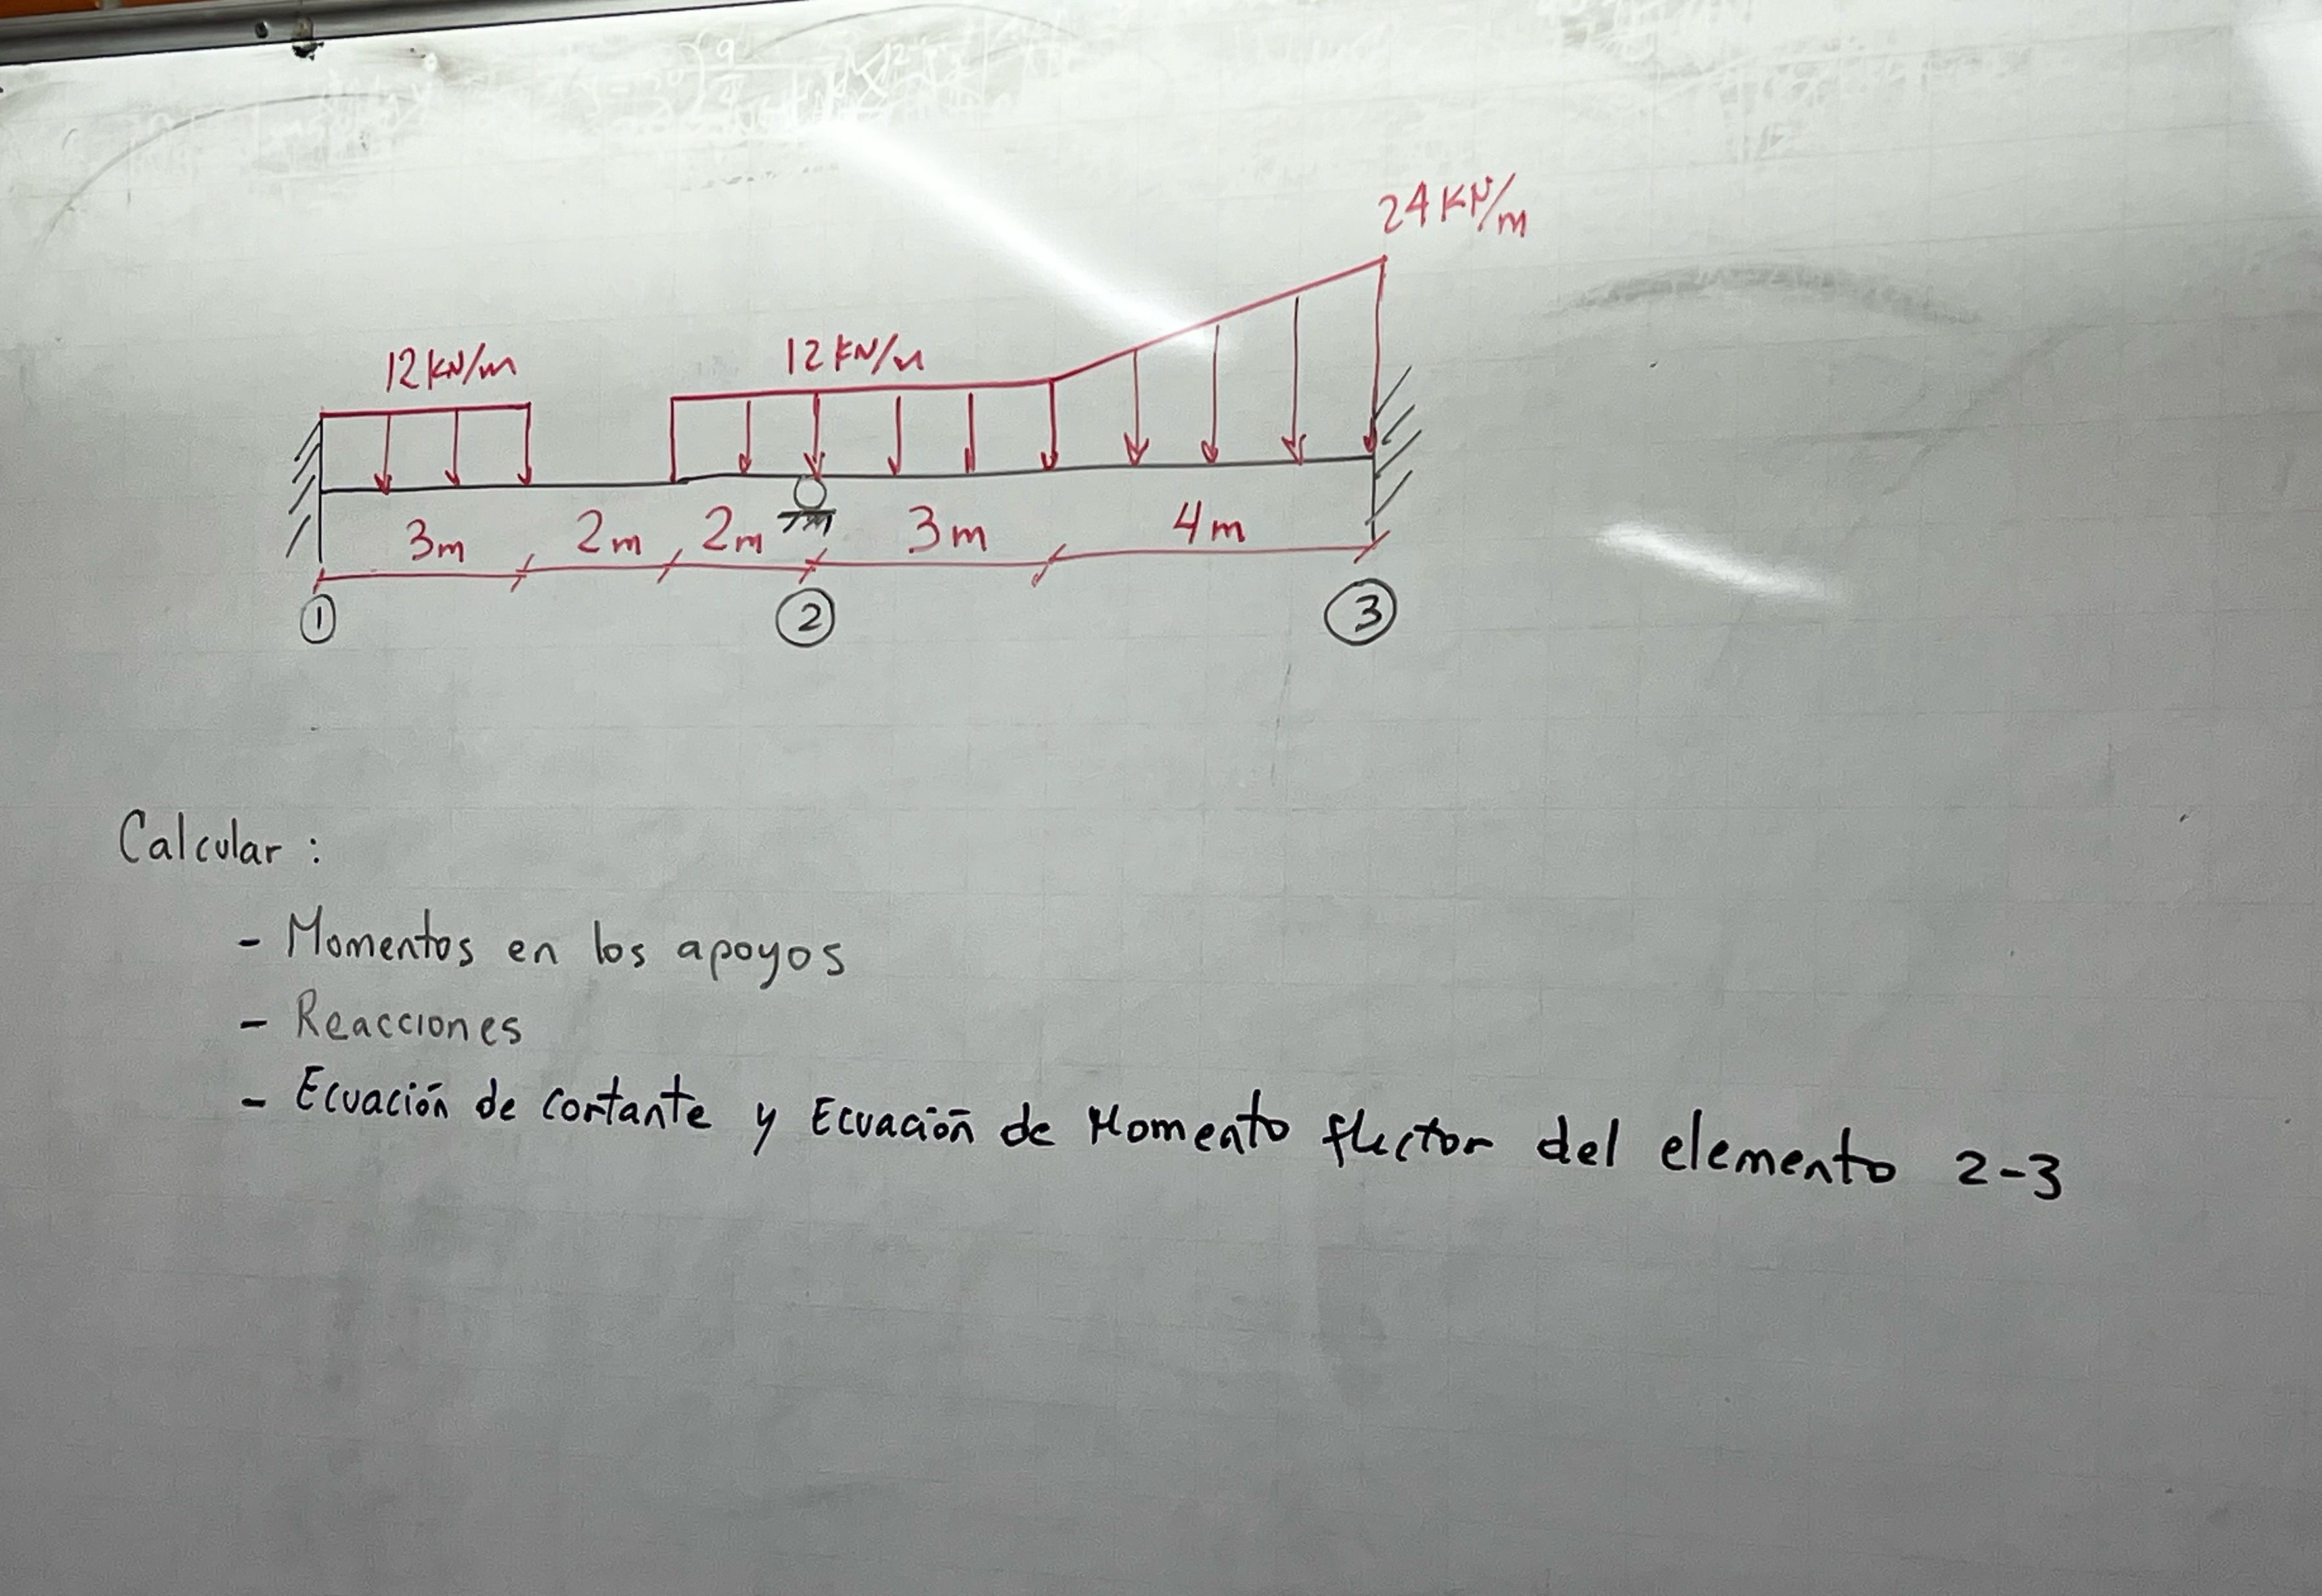 24 KN/m
12 KN/m
12 KN/m
3m 2m 2m 3m 4m
1 2 3
Calcular :
- Momentos en los apoyos
- Reacciones
- Ecuación de cortante y Ecuación de Momento flector del elemento 2-3